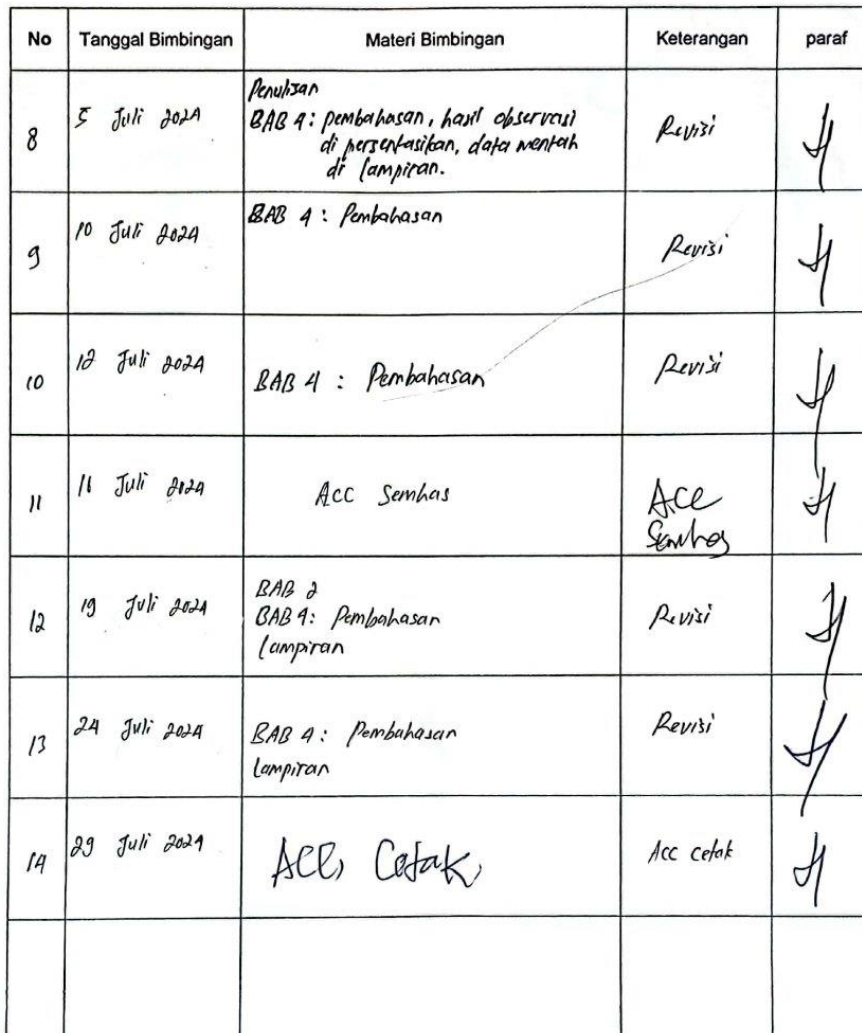 No Tanggal Bimbingan Materi Bimbingan Keterangan paraf
8 5 Juli 2024 Penulisan Revisi
BAB 4: pembahasan, hasil observasi
di persentasikan, data mentah
di lampiran.
9 10 Juli 2024 BAB 4: Pembahasan Revisi
10 12 Juli 2024 BAB 4 : Pembahasan Revisi
11 16 Juli 2024 Acc Semhas ACC
Semhas
12 19 Juli 2024 BAB 2 Revisi
BAB 4: Pembahasan
lampiran
13 24 Juli 2024 BAB 4: Pembahasan Revisi
lampiran
14 29 Juli 2024 ACC, Cetak Acc cetak